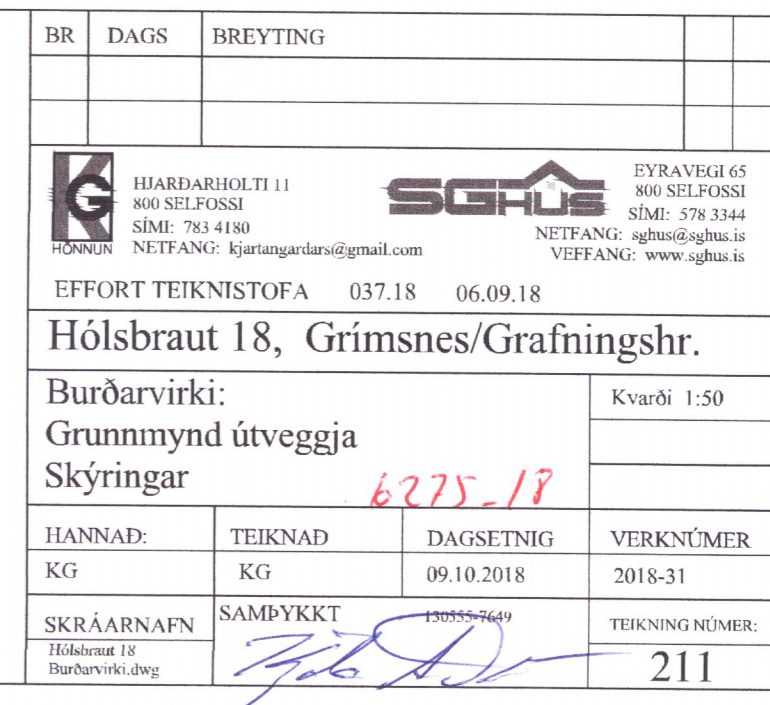 BR DAGS BREYTING
KG
HÖNNUN
HJARÐARHOLTI 11
800 SELFOSSI
SÍMI: 783 4180
NETFANG: kjartangardars@gmail.com
SGHUS
EYRAVEGI 65
800 SELFOSSI
SÍMI: 578 3344
NETFANG: sghus@sghus.is
VEFFANG: www.sghus.is
EFFORT TEIKNISTOFA 037.18 06.09.18
Hólsbraut 18, Grímsnes/Grafningshr.
Burðarvirki:
Grunnmynd útveggja
Skýringar
Kvarði 1:50
6275-18
HANNAÐ: TEIKNAÐ DAGSETNIG VERKNÚMER
KG KG 09.10.2018 2018-31
SKRÁARNAFN
Hólsbraut 18
Burðarvirki.dwg
SAMÞYKKT 130555-7649
TEIKNING NÚMER:
211